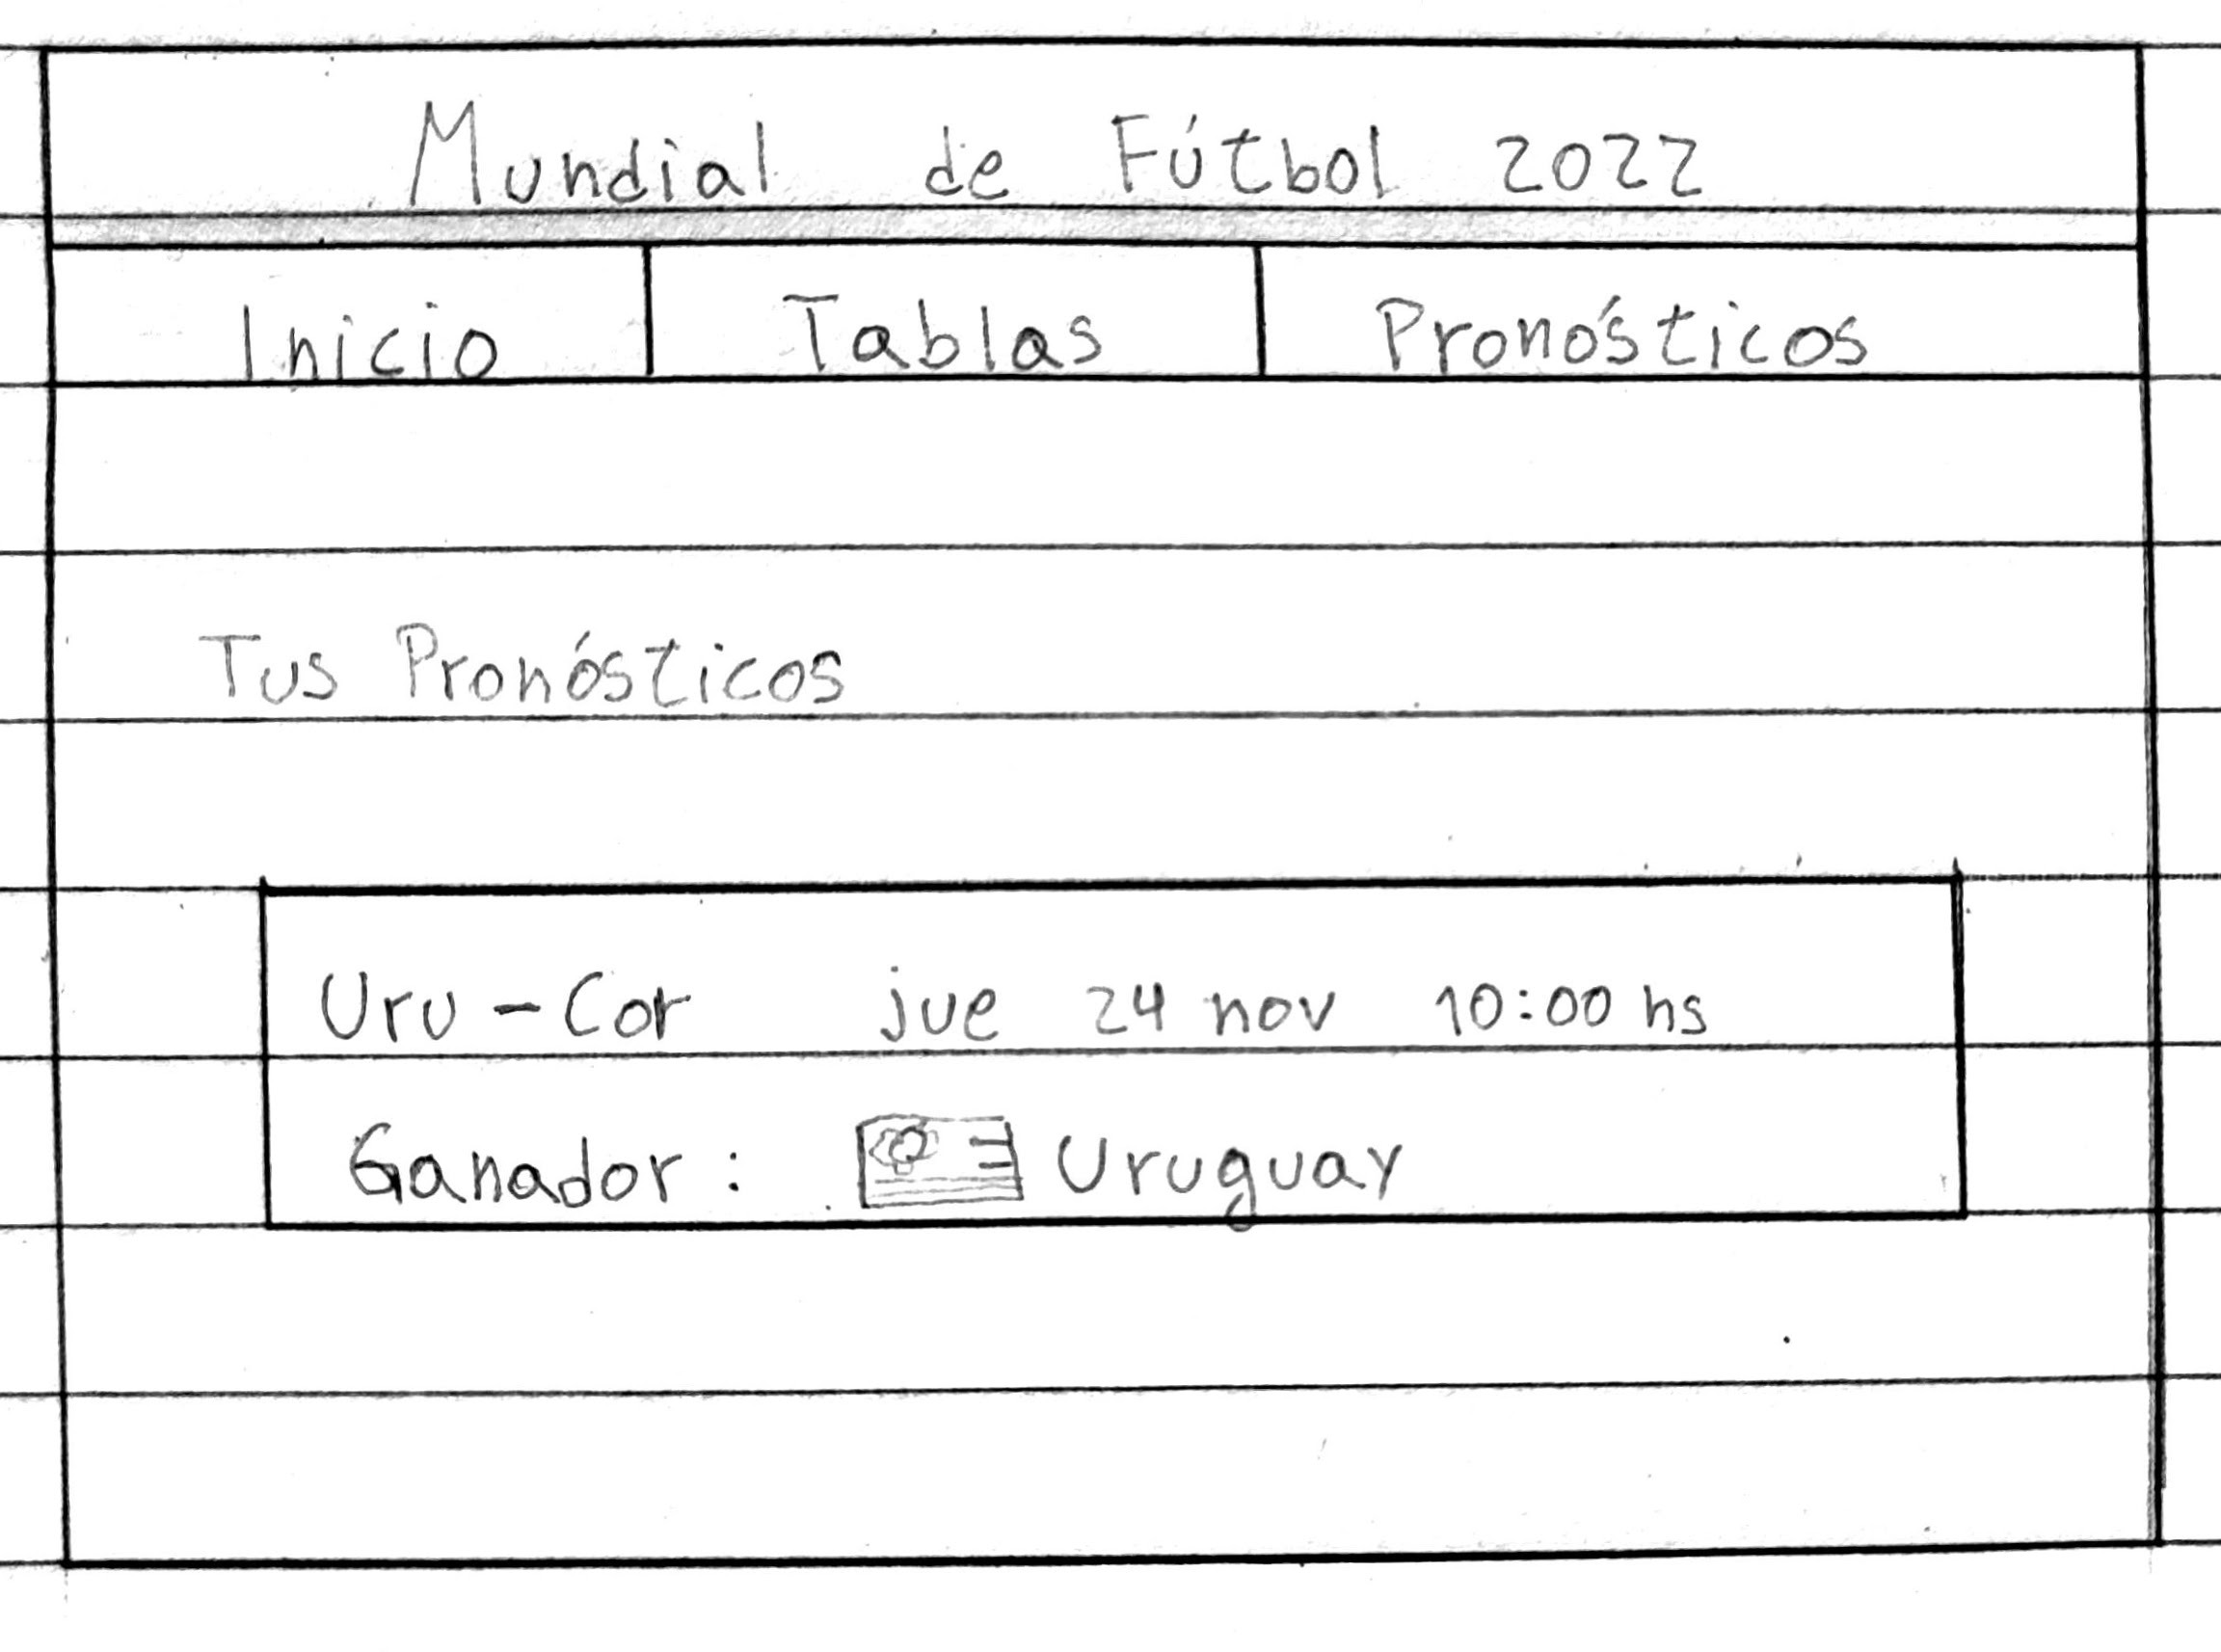 Mundial de Fútbol 2022
Inicio Tablas Pronósticos
Tus Pronósticos
Uru - Cor jue 24 nov 10:00 hs
Ganador: Uruguay